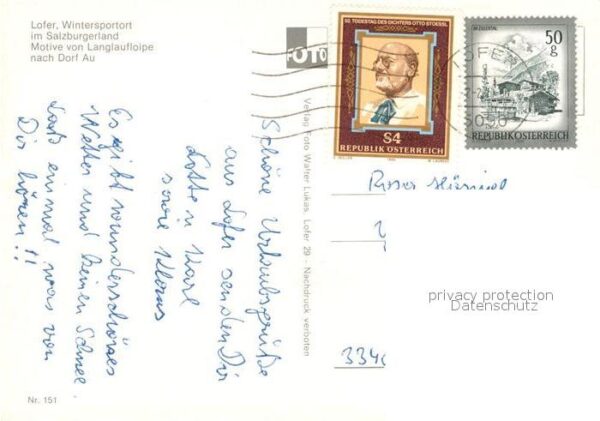 Lofer, Wintersportort
im Salzburgerland
Motive von Langlaufloipe
nach Dorf Au
FOTO
50. TODESTAG DES DICHTERS OTTO STOESSL
S4
REPUBLIK ÖSTERREICH
50
g
REPUBLIK ÖSTERREICH
LOFER
5090
Schöne Urlaubsgrüße
aus Lofer senden Dir
Lotte u Karl
sowie Klaus
Es gibt wunderschönes
Wetter und keinen Schnee.
Laß einmal was von
Dir hören!!
Verlag Foto Walter Lukas, Lofer 29 - Nachdruck verboten
Rosa
334
privacy protection
Datenschutz
Nr. 151